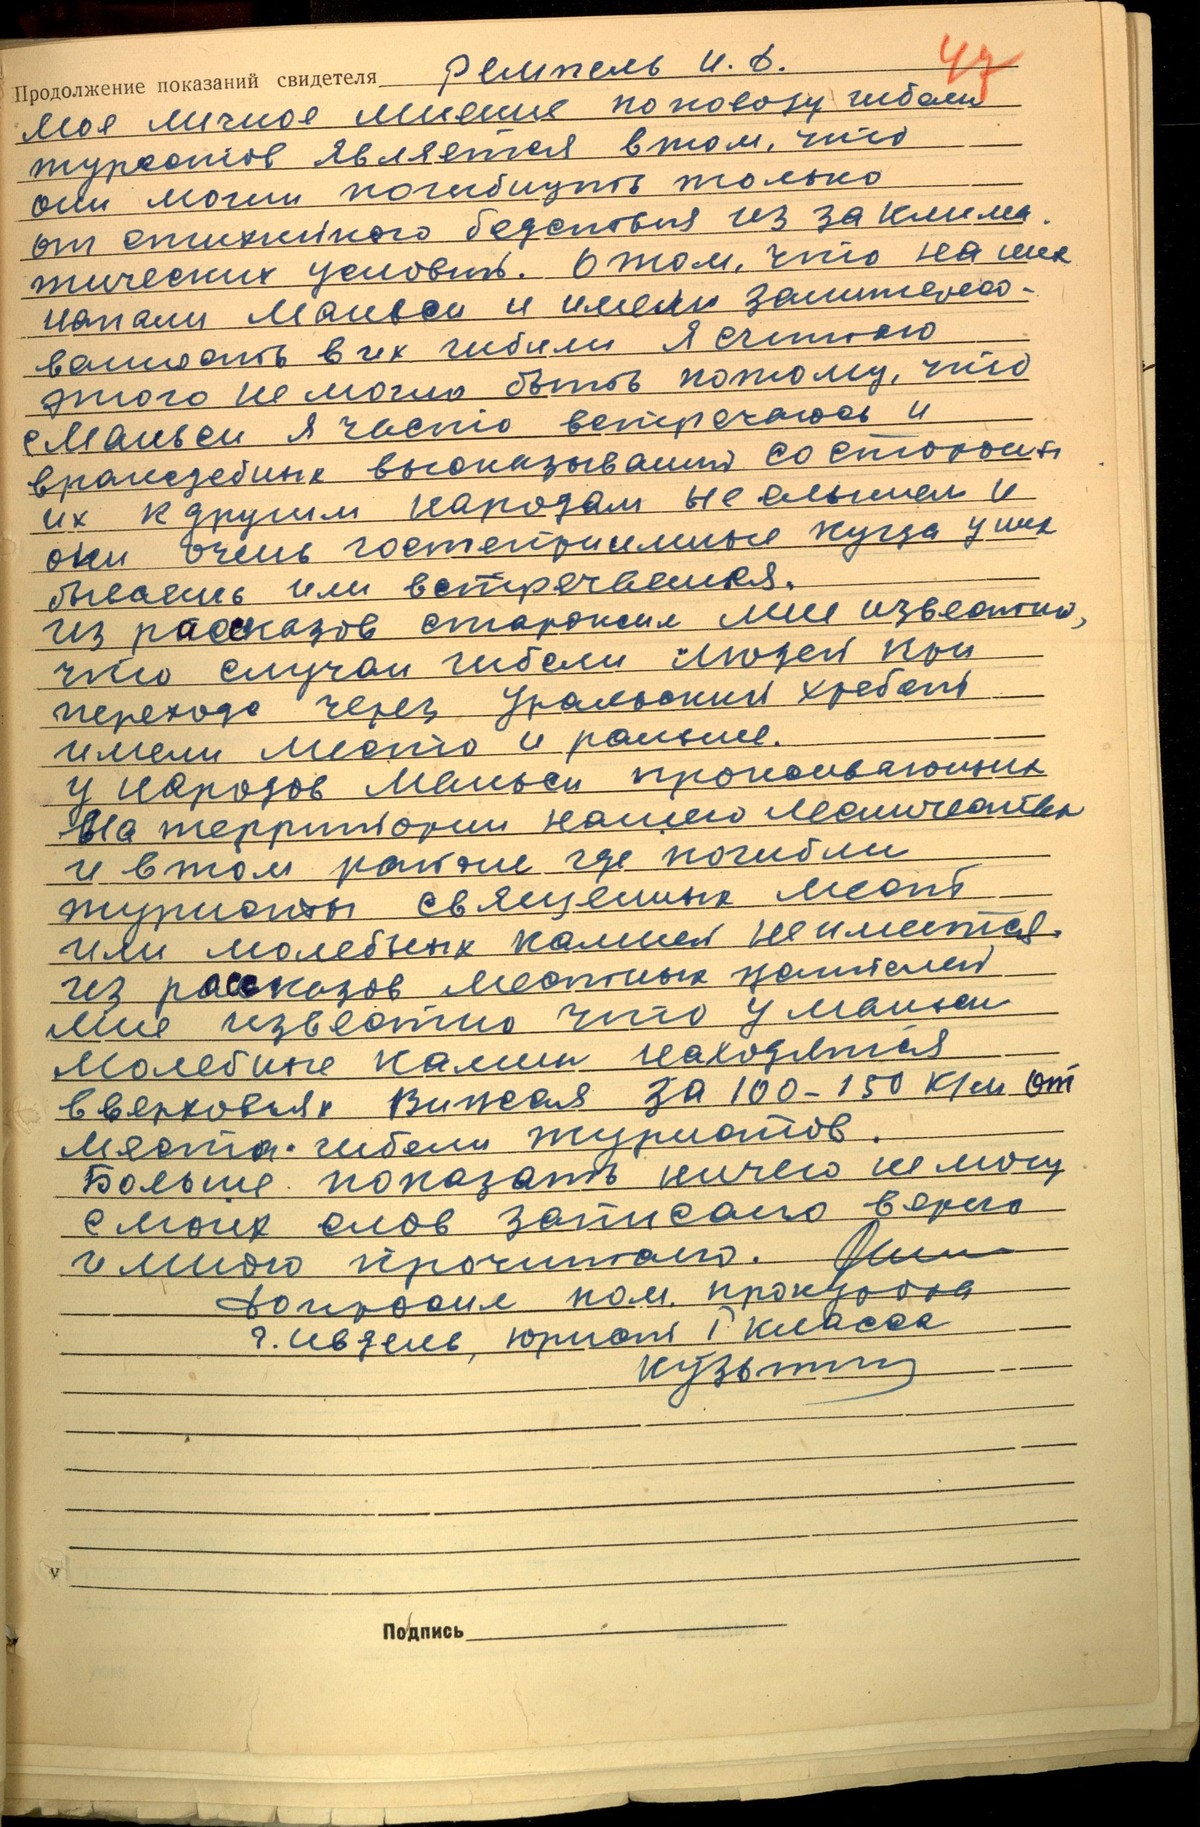 47
Продолжение показаний свидетеля Ремпель И.Д.
Мое личное мнение по поводу гибели
туристов является в том, что
они могли погибнуть только
от стихийного бедствия из за клима-
тических условий. О том, что на них
напали Маньси и имели заинтересо-
ванность в их гибели я считаю
этого не могло быть потому, что
с Маньси я часто встречаюсь и
враждебных высказываний со стороны
их к другим народам не слышал и
они очень гостеприимные куда у них
бываешь или встречаешся.
Из рассказов старожил мне известно,
что случаи гибели людей при
переходе через Уральский хребет
имели место и раньше.
У народов Маньси проживающих
на территории нашего лесничества
и в том районе где погибли
туристы священных мест
или молебных камней не имеется.
Из рассказов местных жителей
мне известно что у маньси
Молебные камни находятся
в верховьях Вижая за 100-150 к/м от
места гибели туристов.
Больше показать ничего не могу
с моих слов записано верно
и мною прочитано.
Допросил пом. прокурора
г. Ивдель, юрист I класса
Кузьмин
v
Подпись